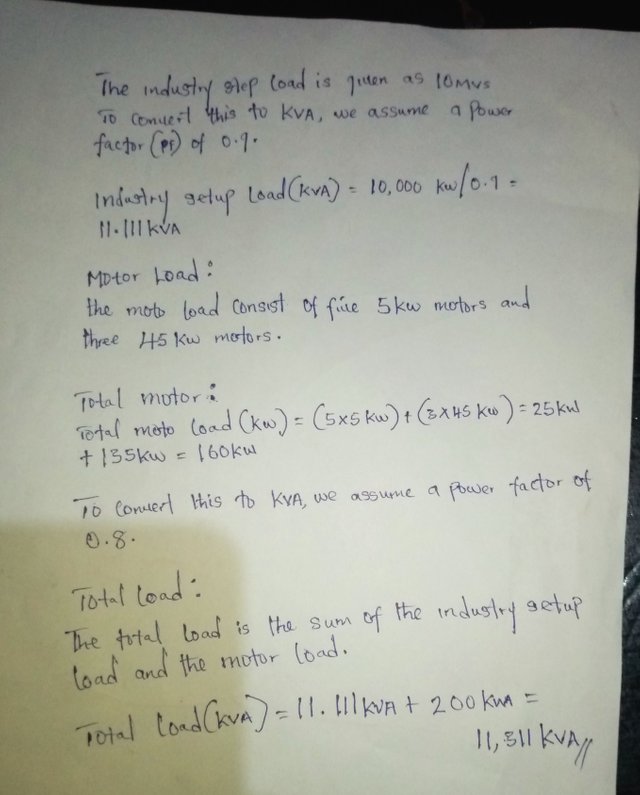 The industry step load is given as 10MVs
To convert this to KVA, we assume a power
factor (pf) of 0.9.
Industry setup Load (KVA) = 10,000 kw/0.9 =
11.111 KVA
Motor Load:
the moto load consist of five 5kw motors and
three 45 kw motors.
Total motor:
Total moto load (kw) = (5x5 kw) + (3x45 kw) = 25kw
+ 135kw = 160kw
To convert this to KVA, we assume a power factor of
0.8.
Total load:
The total load is the sum of the industry setup
load and the motor load.
Total load (KVA) = 11.111 KVA + 200 KVA =
11,311 KVA//